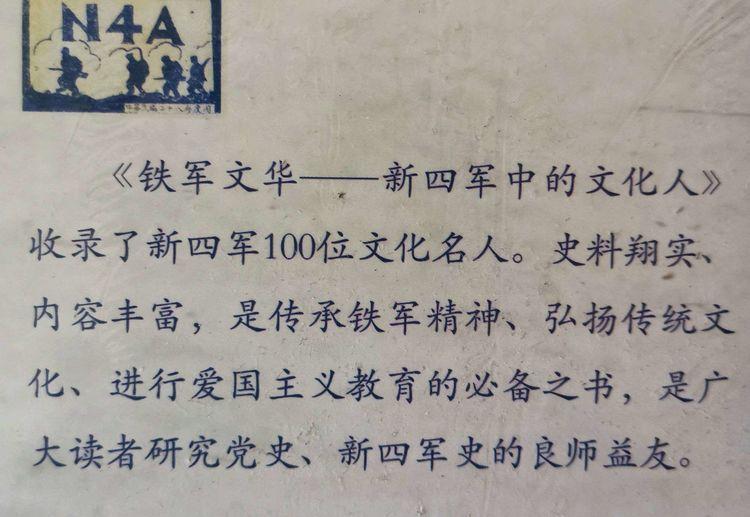 N4A
《铁军文华——新四军中的文化人》
收录了新四军100位文化名人。史料翔实、
内容丰富，是传承铁军精神、弘扬传统文
化、进行爱国主义教育的必备之书，是广
大读者研究党史、新四军史的良师益友。